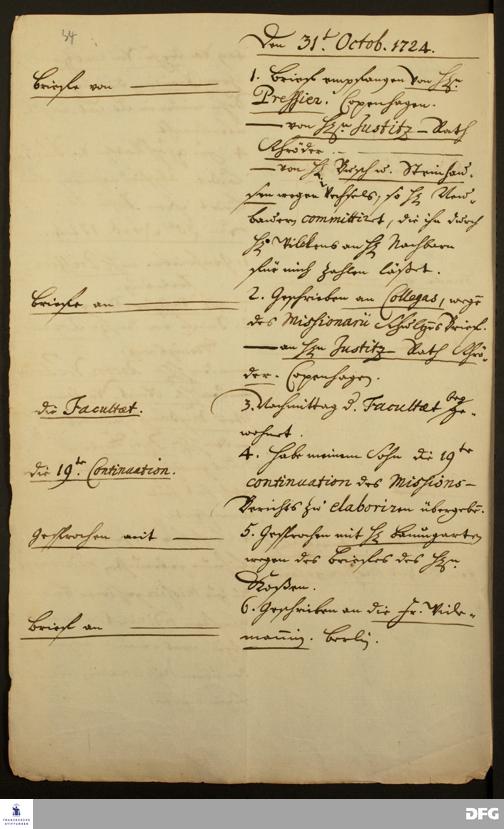 34
Den 31t. Octob. 1724.
Briefe von
1. Brief empfangen von Hrn.
Pressier. Copenhagen.
— von Hrn Justitz-Rath
Schröder.
— von H.
wegen Wechsels, so H. Neu-
bauern committiret, die ihn durch
H. Wilckens an H. Nachbarn
für mich zahlen läßet.
Briefe an
2. Geschrieben an Collegas, wegen
des Missionarii Schultzens Brief.
— an Hrn Justitz-Rath Schrö-
der. Copenhagen.
die Facultæt.
3. Nachmittag d. Facultæt beyge-
wohnet.
die 19te Continuation.
4. Habe meinem Sohn die 19te
continuation des Missions-
Berichts zu elaboriren übergeben.
Gesprochen mit
5. Gesprochen mit H. Baumgarten
wegen des Briefes des Hrn.
Brief an
6. Geschrieben an die Fr.
Berlin.
FRANCKESCHE
STIFTUNGEN
DFG